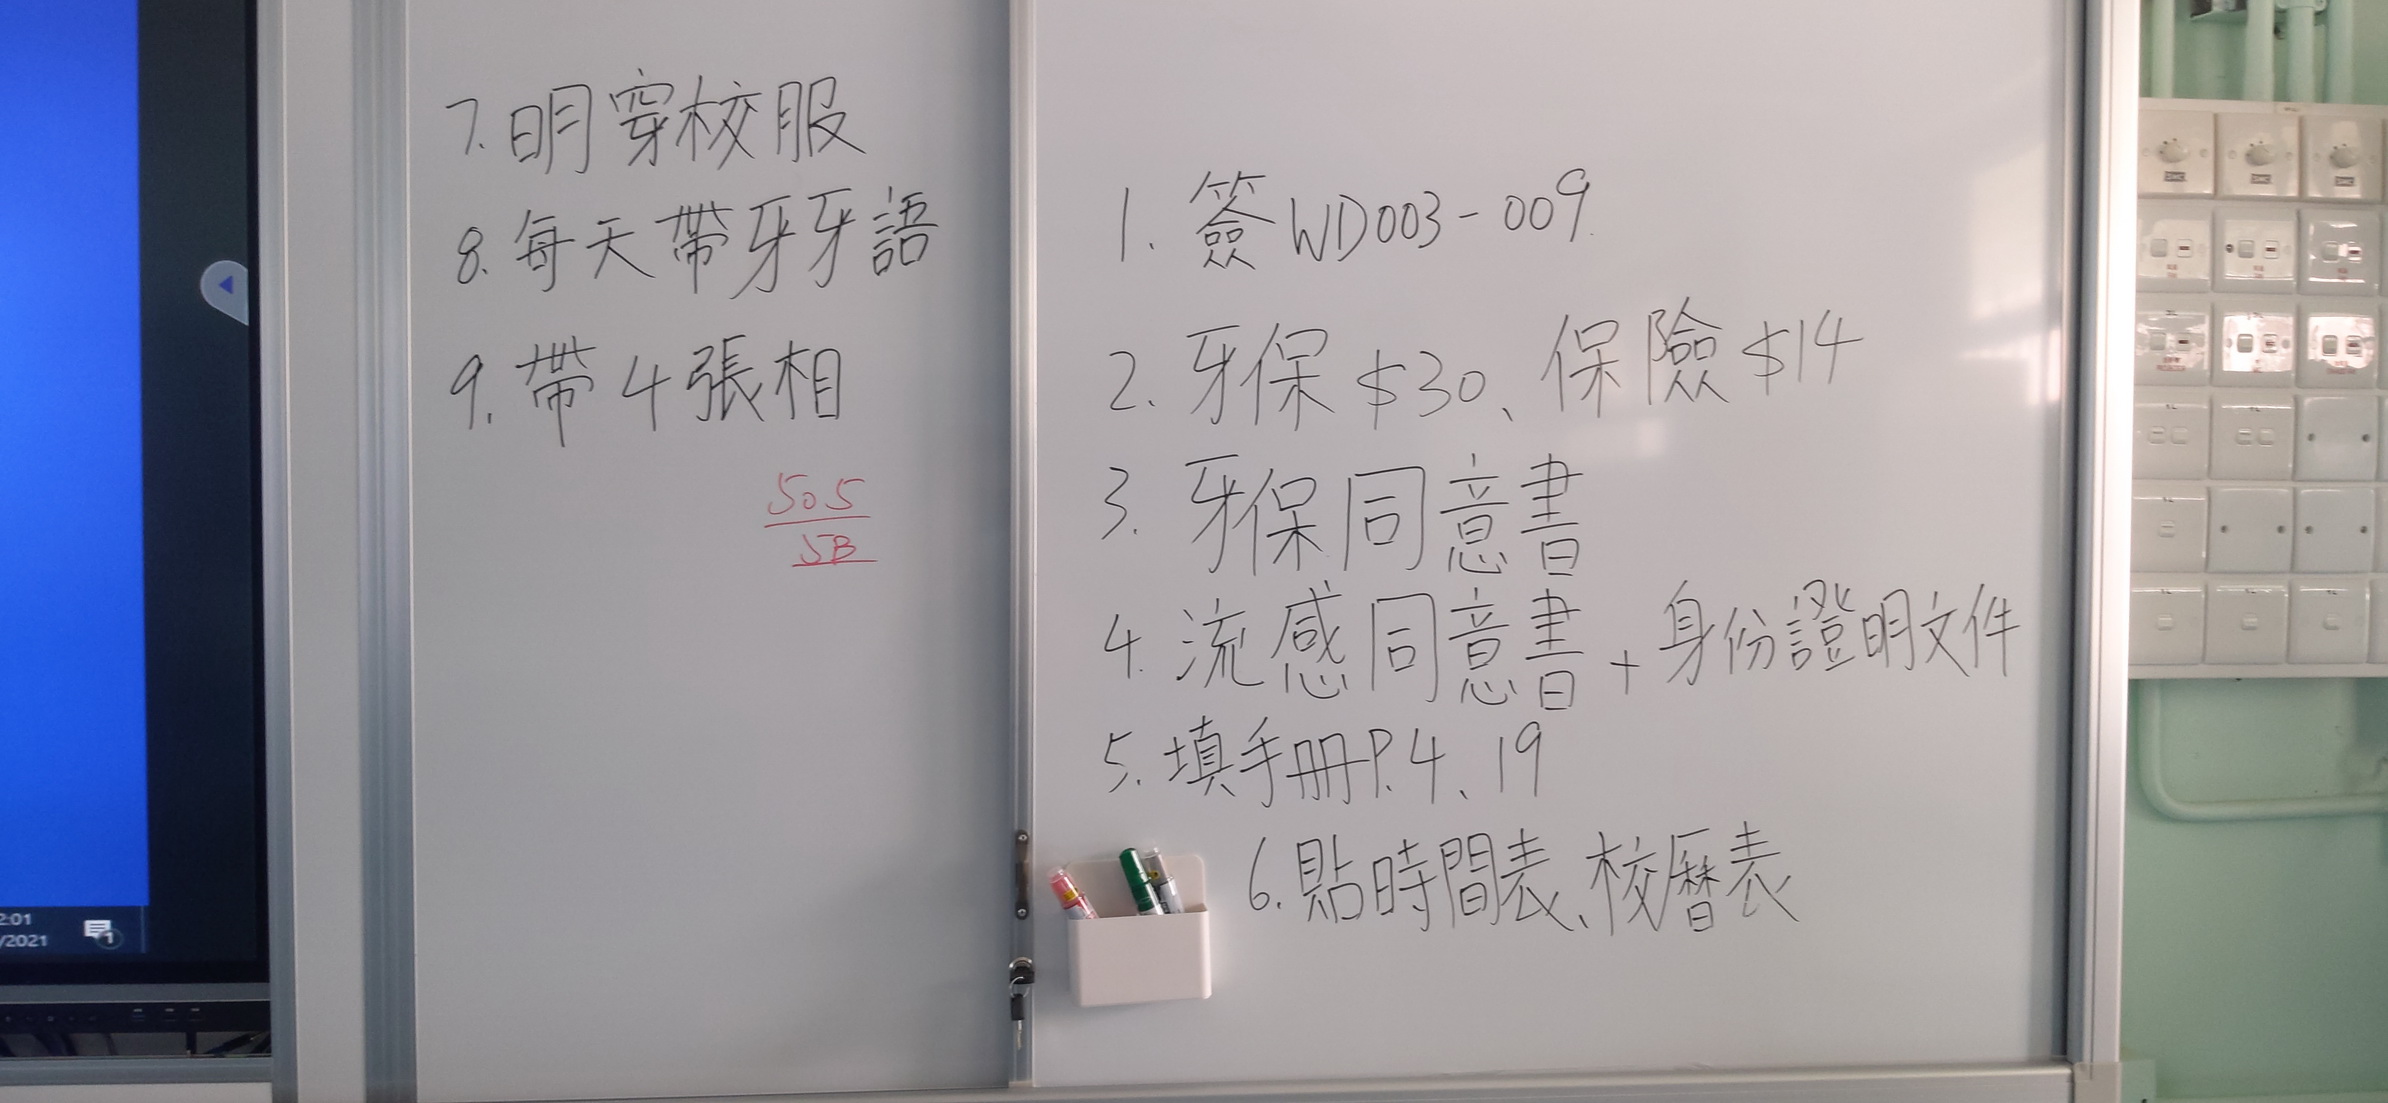 7. 明穿校服
8. 每天帶牙牙語
9. 帶4張相
505
5B
1. 簽WD003-009
2. 牙保$30、保險$14
3. 牙保同意書
4. 流感同意書+身份證明文件
5. 填手冊P.4、19
6. 貼時間表、校曆表
2:01
/2021
1